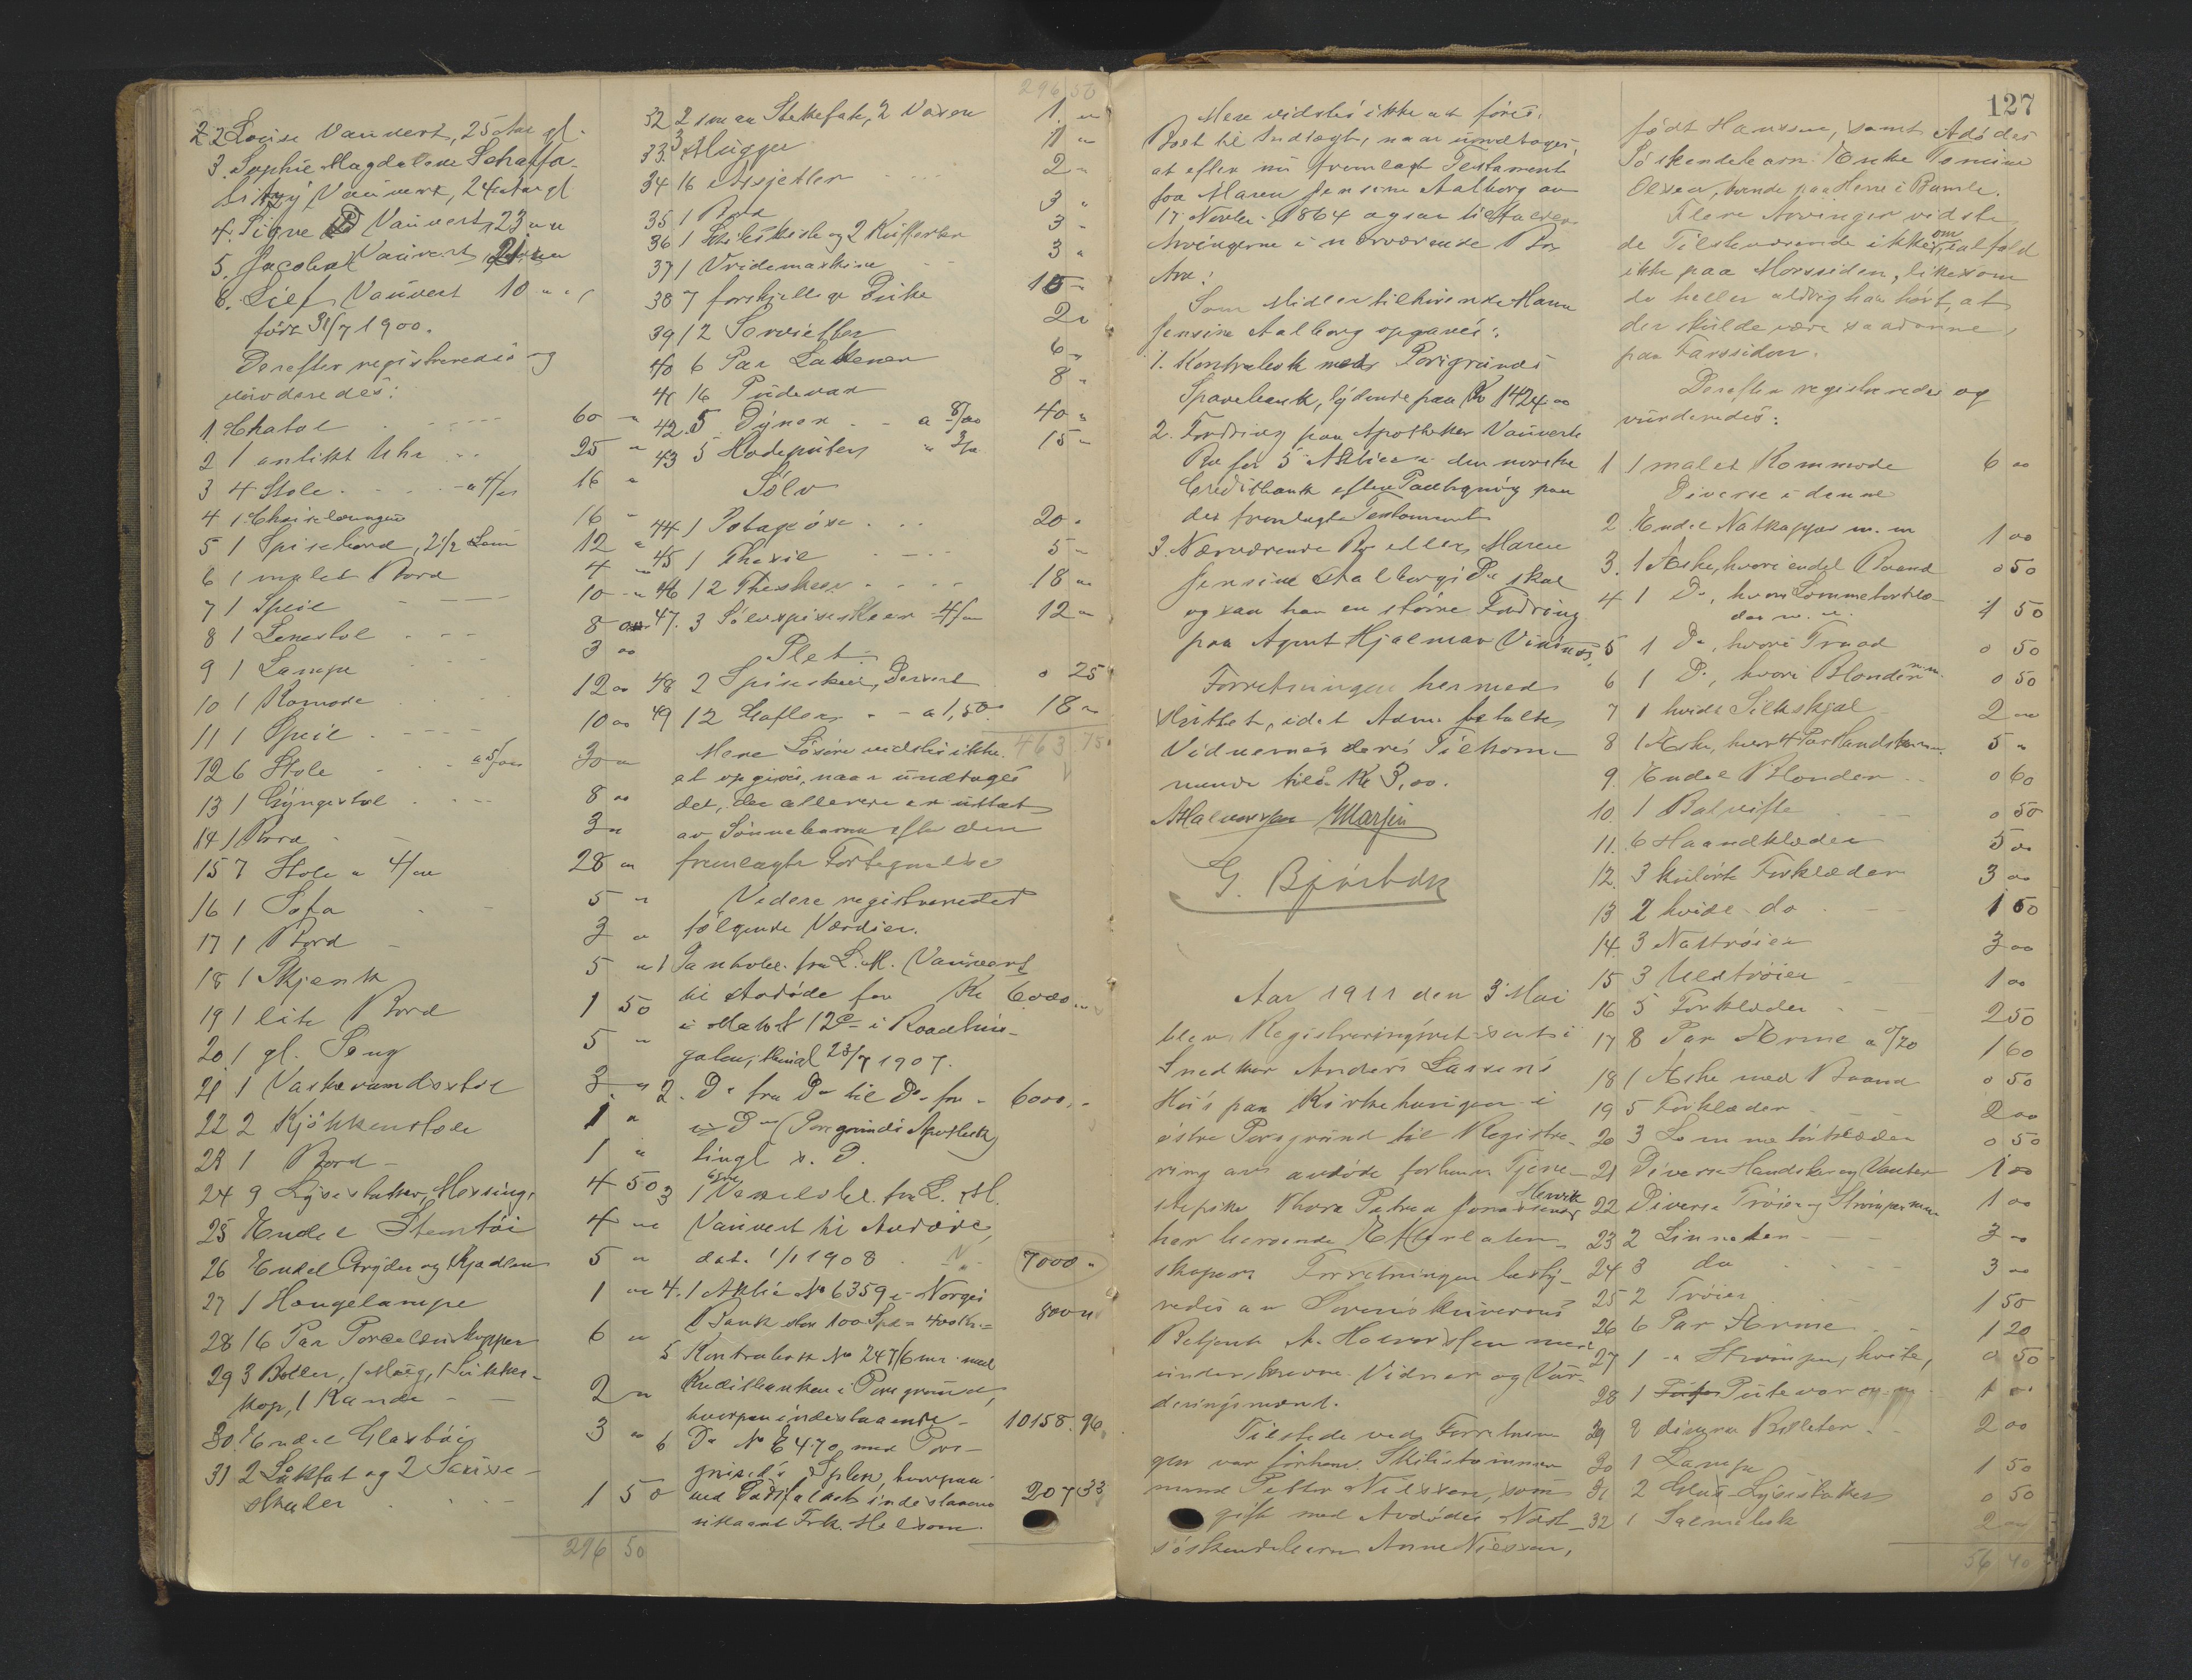 2 Louise Vauvert, 25 Aar gl.
3. Sophie Magdalene Schaffa-
litzky Vauvert, 24 Aar gl
4. Signe D Vauvert, 23 " "
5. Jacobal Vauvert 21 " "
6. Lief Vauvert 10 " "
født 31/7 1900.
Derefter registreredes og
vurderedes:
1. Chatol 60 "
2 1 antikt Uhr 25 "
3 4 Stole a 4/00 16 "
4 1 Chaiselounge 16 "
5 1 Spisebord, 2 1/2 Lem 12 "
6 1 malet Bord 4 "
7 1 Speil 10 "
8 1 Lenestol 8 00
9 1 Lampe 3 00
10 1 Komode 12 00
11 1 Speil 10 00
12 6 Stole a 5/00 30 "
13 1 Gyngestol 8 00
14 1 Bord 3 "
15 7 Stole a 4/00 28 "
16 1 Sofa 5 "
17 1 Bord 3 "
18 1 Skjenk 5 "
19 1 lite Bord 1 50
20 1 gl. Seng 5 "
21 1 Vaskevandsstol 3 "
22 2 Kjøkkenstole 1 "
23 1 Bord 1 "
24 9 Lysestaker, Messing 4 50
25 Endel Stentøi 4 "
26 Endel Gryder og Kjedler 5 "
27 1 Hengelampe 1 "
28 16 Par Porcelænskopper 6 "
29 3 Boller, 1 Mug, 1 Sukker-
kop, 1 Kande 2 "
30 Endel Glastøi 3 "
31 2 Låkfat og 2 Sause-
skaaler 1 50
296 50
296 50
32 2 smaa Stekefat, 2 Vaser 1 "
33. 3 Mugger 1 "
34 16 Assjetter 2 "
35 1 Bord 3 "
36 1 Skibskiste og 2 Kufferter 3 "
37 1 Vridemaskine 3 "
38 7 forskjellige Duke 15 "
39 12 Servietter 2 "
40 6 Par Lakener 6 "
41 16 Pudevar 8 "
42. 5 Dyner a 8/00 40 "
43 5 Hodeputer " 3/00 15 "
Sølv
44 1 Potageøse 20 "
45 1 Thesil 5 "
46 12 Theskeer 18 "
47. 3 Sølvspiseskeer 4/00 12 "
Plet.
48 2 Spiseskeer, Dessert 0 25
49 12 Gafler a 1,50 18 "
463.75
Mere Løsøre vidstes ikke
at opgives, naar undtages
det, der allerede er uttat
av Sønnebarna efter den
fremlagte Fortegnelse
Videre registreredes
følgende Værdier.
1 Panteobl. fra L. M. Vauvert
til Avdøde for Kr 6000 "
i Matr. 12 i Raadhus-
gaten, thingl 23/7 1907.
2. Do fra Do til Do for " 6000, "
i Do (Porsgrunds Apothek)
tingl s. D.
3 1 Vexelobl. fra L. M.
Vauvert til Avdøde,
dat. 1/1 1908 7000 "
4. 1 Aktie No 6359 i Norges
Bank stor 100 Spd = 400 Kr = 800 "
5 Kontrabok No 247/6 mr. med
Kreditbanken i Porsgrund,
hvorpaa indestaaende 10158.96
6 Do No E 470 med Pors-
grund's Splen, hvorpaa
ved indestaaende 207 33
Frk. Helsom.
Mere vidstes ikke at føres
Boet til Indtægt, naar undtages,
at efter nu fremlagt Testament
fra Maren Jensine Aalborg av
17 Novbr. 1864 ogsaa
Arvingerne i nærværende Bo
Arv:
Som Midler tilhørende Maren
Jensine Aalborg opgaves:
1. Kontrabok med Porsgrunds
Sparebank, lydende paa Kr 1424 00
2. Fordring paa Apotheker Vauverts
Bo for 5 Aktier i den norske
Creditbank efter Paategning paa
det fremlagte Testament
3. Nærværende Bo eller Maren
Jensine Aalborgs Do skal
ogsaa ha en større Fordring
paa Agent Hjalmar
Forretningen hermed
sluttet, idet Adm. fortalte
Vidnernes deres Tilkom-
mende tils. Kr 3,00.
AHalvorsen
G. Bjørbæk
Aar 1911 den 3 Mai
blev Registreringsret sat i
Snedker Anders Larsens
Hus paa Kirkehaugen i
østre Porsgrund til Registre-
ring av avdøde forhenv. Tjene-
stepike Thora Petrea Jonassens
her beroende Efterlaten-
skaper. Forretningen besty-
redes av Sorenskriverens
Betjent A. Halvorsen med
underskrevne Vidner og Vur-
deringsmænd.
Tilstede ved Forretnin-
gen var forhenv. Skibstømmer-
mand Petter Nielsen, som
gift med Avdødes
søskendebarn Anne Nielsen,
127
født Hansen, samt Avdødes
Søskendebarn Enke Tomine
Olsen, boende paa Herre i Bamle.
Flere Arvinger vidste
de Tilstedeværende ikke om, ialfald
ikke paa Morssiden, likesom
de heller aldrig har hørt, at
der skulde være saadanne
paa Farssiden.
Derefter registreredes og
vurderedes:
1 1 malet Kommode 6 00
Diverse i denne
2. Endel Natkapper m. m 1 00
3. 1 Æske, hvori endel Baand 0 50
4 1 Do, hvori Lommetørklæ-
der m. m. 1 50
5 1 Do, hvori Traad 0 50
6 1 Do, hvori Blonder m.m. 0 50
7 1 hvidt Silkeskjal 2 00
8 1 Æske, hvori 4 Par Handsker m.m. 5 "
9. Endel Blonder 0 60
10. 1 Balvifte 0 50
11. 6 Haandklæder 5 00
12. 3 kulørte Forklæder 3 00
13 2 hvide do 1 50
14. 3 Nattrøier 3 00
15 3 Uldtrøier 1 00
16 5 Forklæder 2 50
17 8 Par Ærme a 0/20 1 60
18 1 Æske med Baand 0 50
19 5 Forklæder 2 00
20 3 Lommetørklæder 0 50
21 Diverse Handsker og Vanter 1 00
22 Diverse Trøier og Strømper m.m. 1 00
23 2 Linneter 3 00
24 3 do 3 00
25 2 Trøier 1 50
26 6 Par Ærme 1 20
27 1 " Strømper, hvite, 0 50
28 1 Putevar 1 00
29 8 diverse Billeter 2 00
30 1 Lampe 1 50
31 2 Glas-Lysestaker 0 50
32 1 Salmebok 2 00
56 40